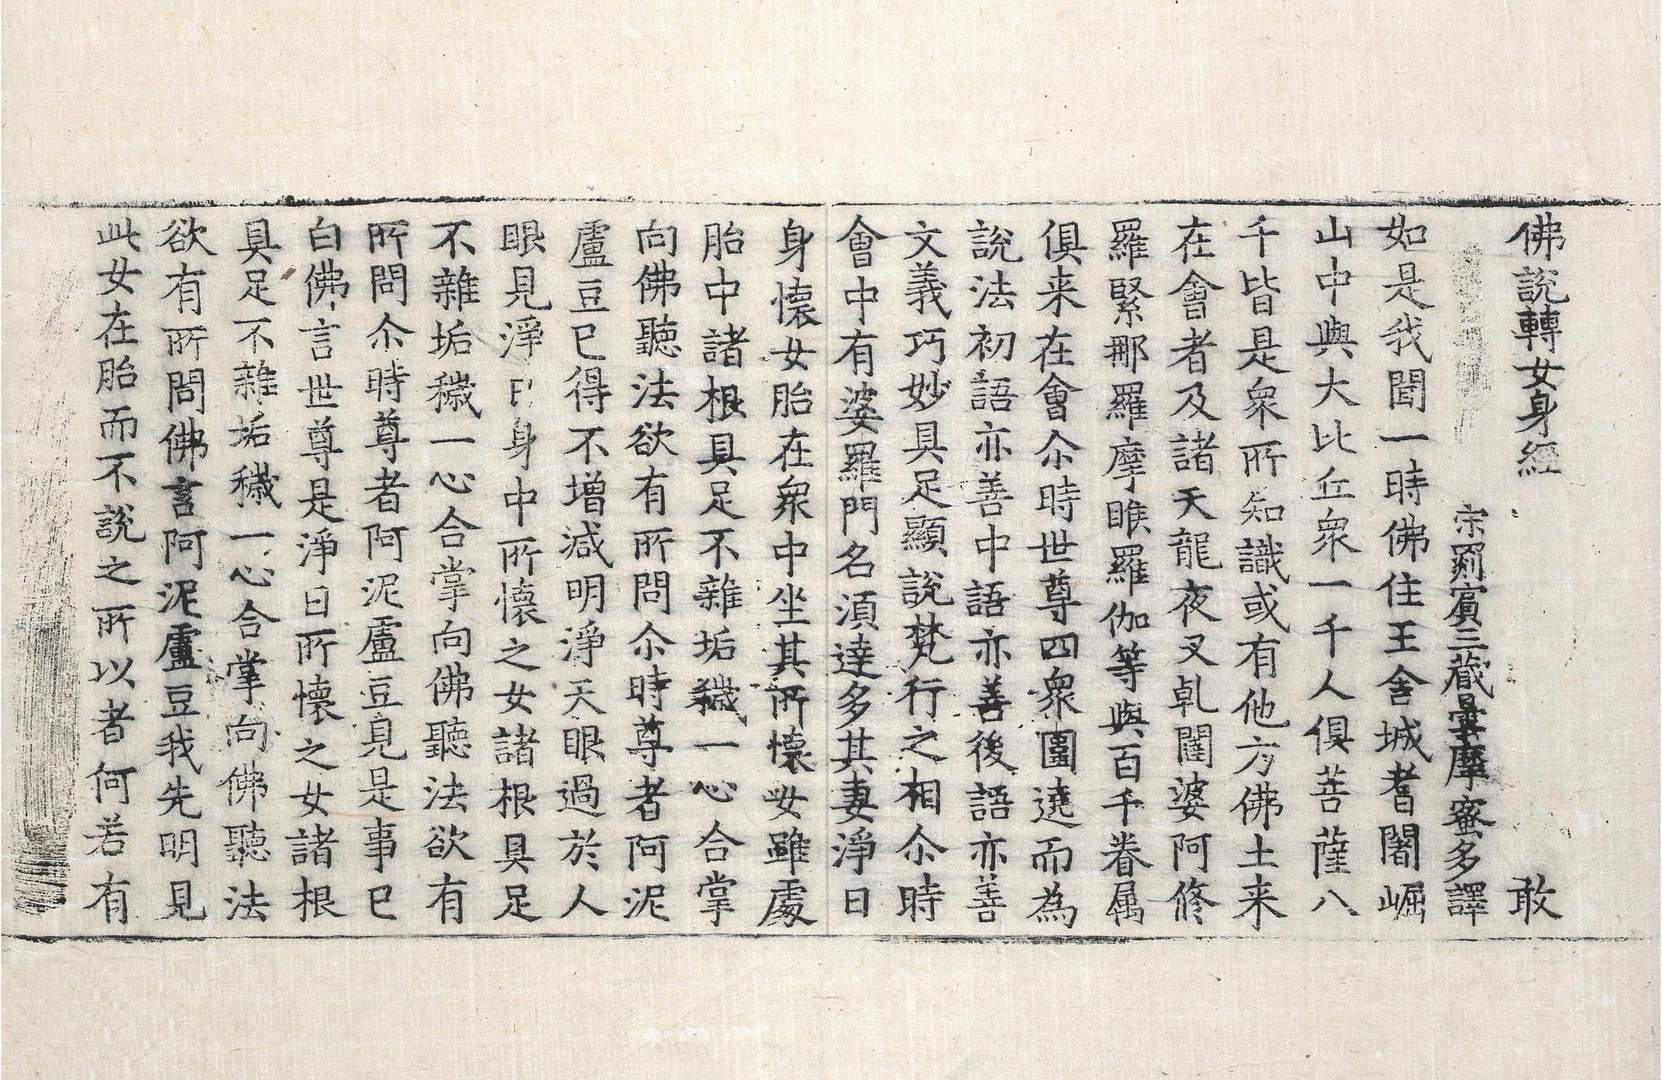 佛說轉女身經 敢
宋罽賓三藏曇摩蜜多譯
如是我聞一時佛住王舍城耆闍崛
山中與大比丘衆一千人俱菩薩八
千皆是衆所知識或有他方佛土来
在會者及諸天龍夜叉乹闥婆阿脩
羅緊那羅羅摩睺羅伽等與百千眷属
俱来在會尒時世尊四衆圍遶而為
說法初語亦善中語亦善後語亦善
文義巧妙具足顯說梵行之相尒時
會中有婆羅門名湏達多其妻淨日
身懷女胎在衆中坐其所懷女雖處
胎中諸根具足不雜垢穢一心合掌
向佛聽法欲有所問尒時尊者阿泥
盧豆已得不增減明淨天眼過於人
眼見淨日身中所懷之女諸根具足
不雜垢穢一心合掌向佛聽法欲有
所問尒時尊者阿泥盧豆見是事已
白佛言世尊是淨日所懷之女諸根
具足不雜垢穢一心合掌向佛聽法
欲有所問佛言阿泥盧豆我先明見
此女在胎而不說之所以者何若有